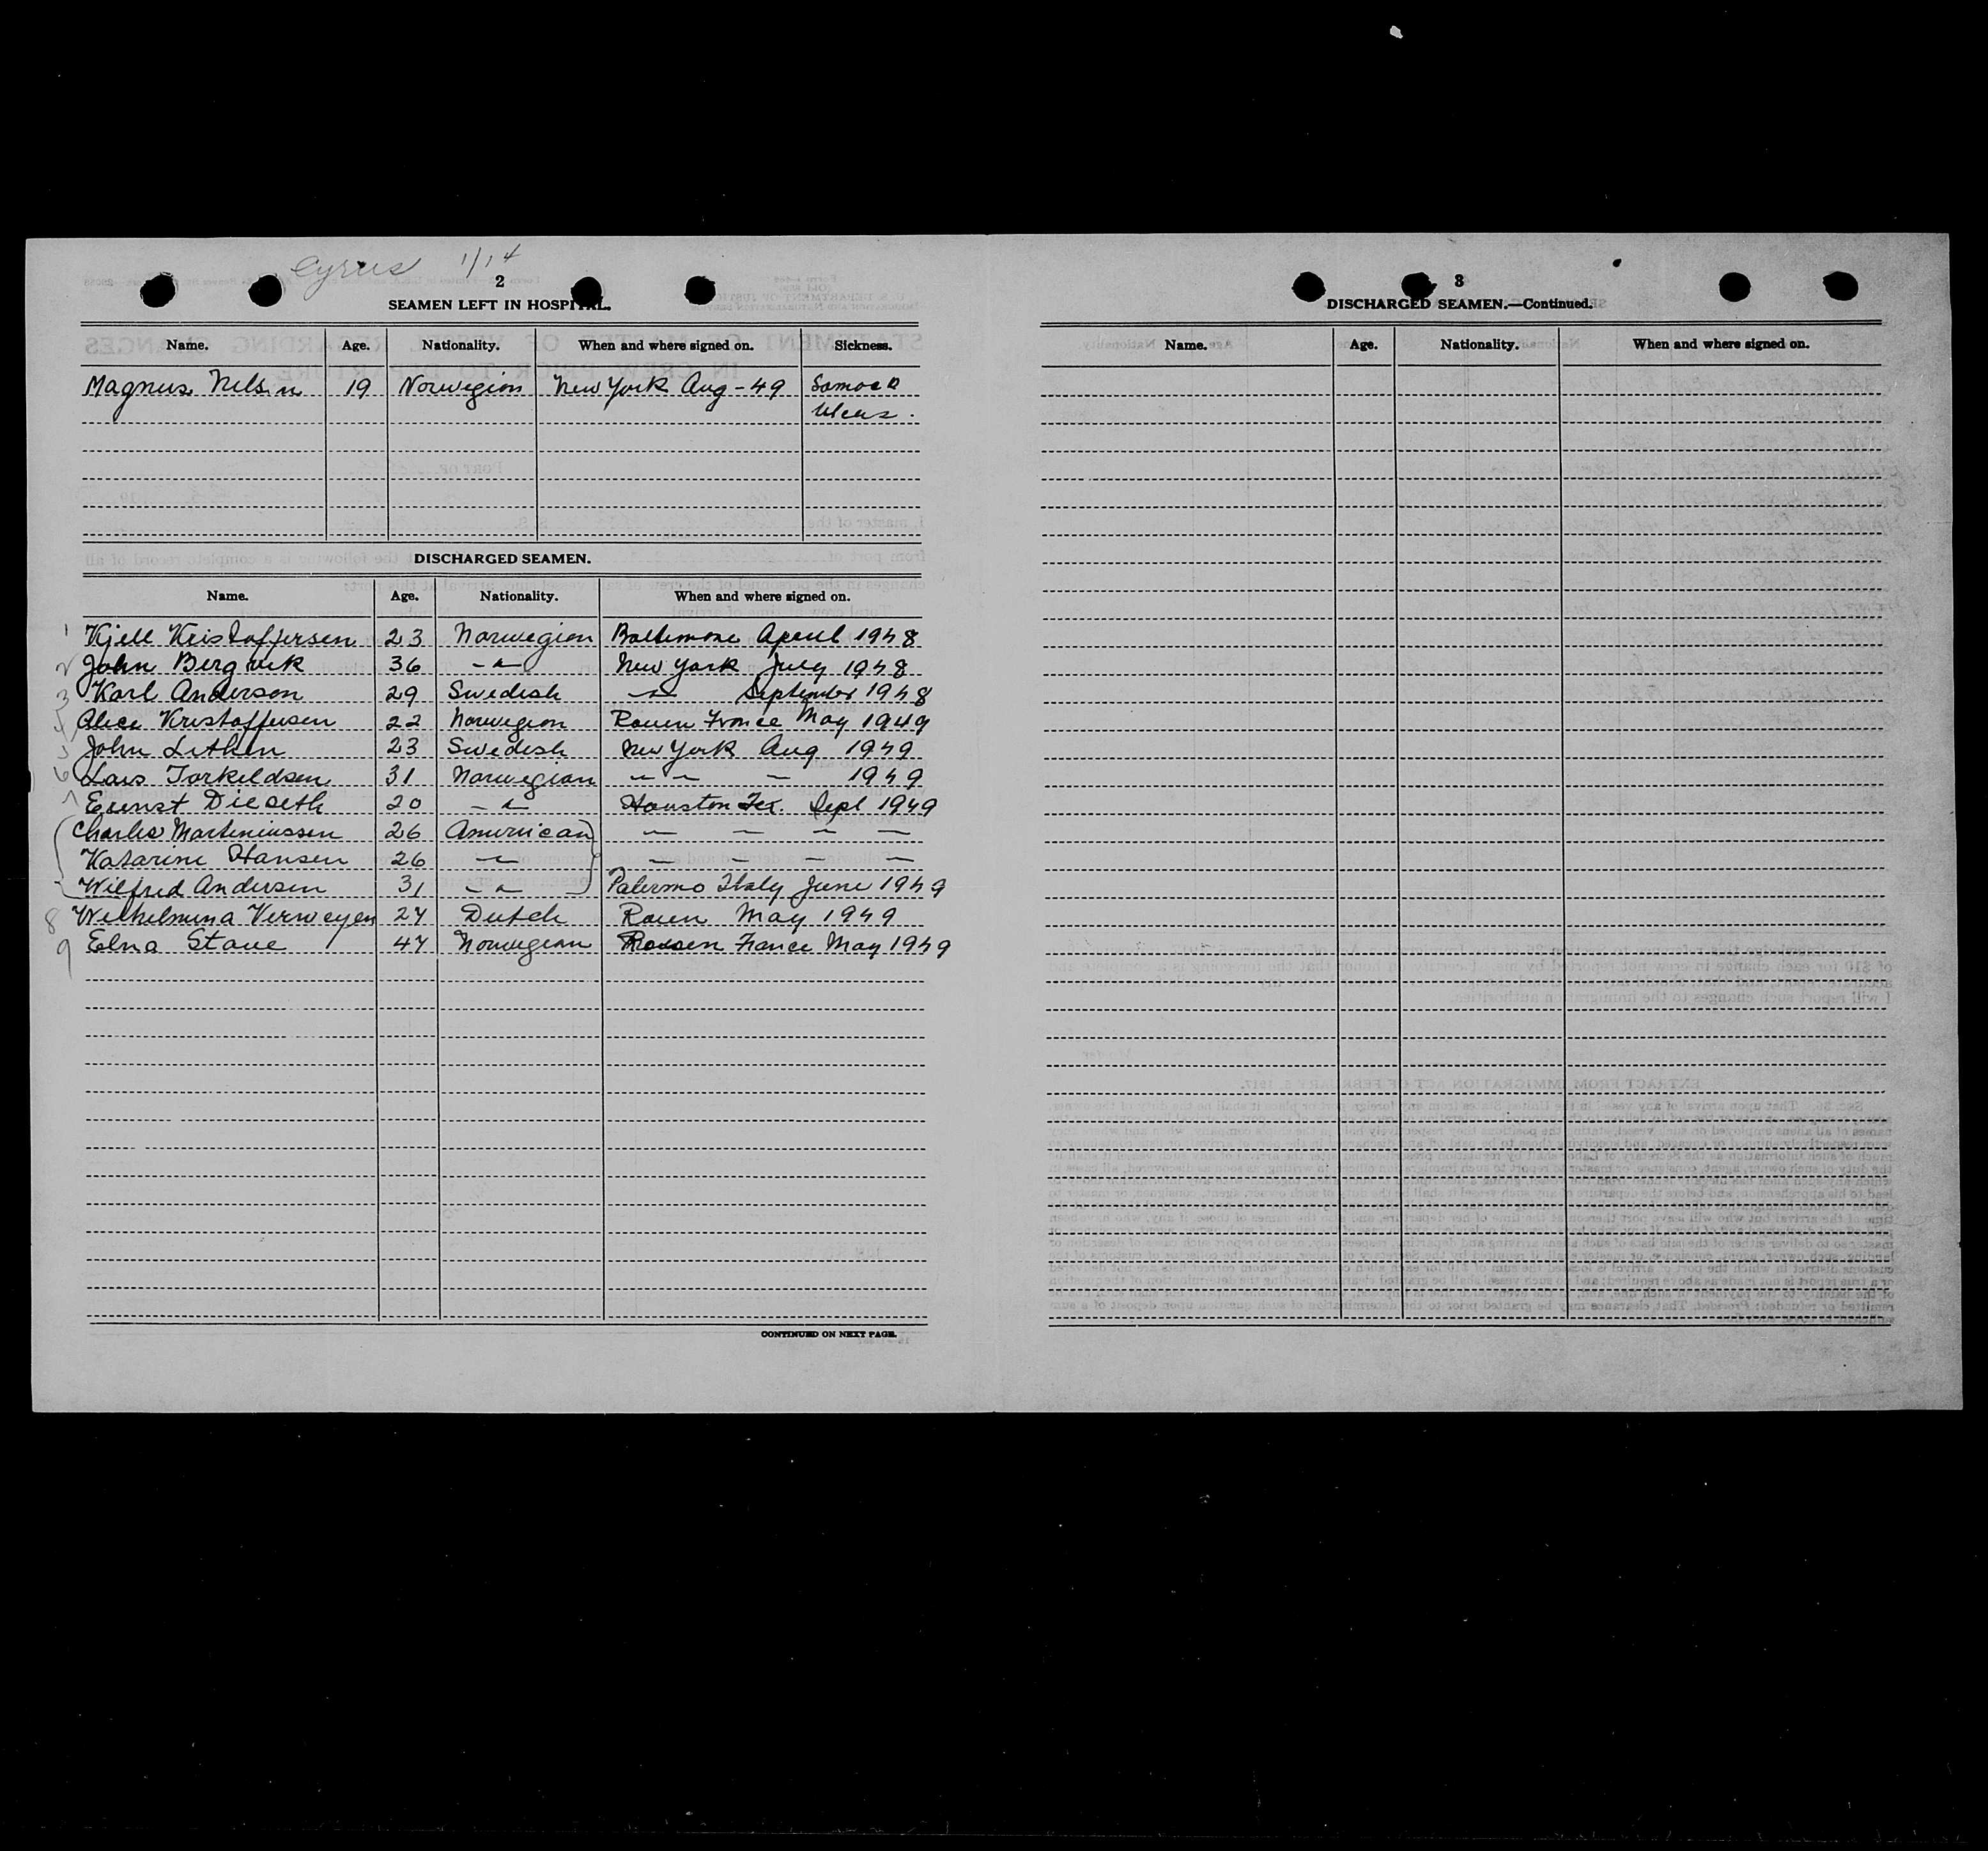 Cyrus 1/14
2
SEAMEN LEFT IN HOSPITAL.
Name. Age. Nationality. When and where signed on. Sickness.
Magnus Nelsen 19 Norwegion New York Aug-49 Somack
Ulcus.
DISCHARGED SEAMEN.
Name. Age. Nationality. When and where signed on.
1 Kjell Kristoffersen 23 Norwegion Baltimore Aperil 1948
2 John Bergvik 36 -"- New York July 1948
3 Karl Anderson 29 Swedish -"- September 1948
4 Alice Kristoffersen 22 Norwegion Rouen France May 1949
5 John Lethin 23 Swedish New York Aug 1949
6 Lars Torkeldsen 31 Norwegian -"- -"- - 1949
7 Ernst Dieseth 20 -"- Houston Tex. Sept 1949
Charles Marteniussen 26 American - - - -
Katarine Hansen 26 -"- - - - -
Wilfred Andersen 31 -"- Palermo Italy June 1949
8 Wilhelmina Verweyen 27 Dutch Rouen May 1949
9 Elna Staue 47 Norwegian Rouen France May 1949
CONTINUED ON NEXT PAGE.
3
DISCHARGED SEAMEN.—Continued.
Name. Age. Nationality. When and where signed on.